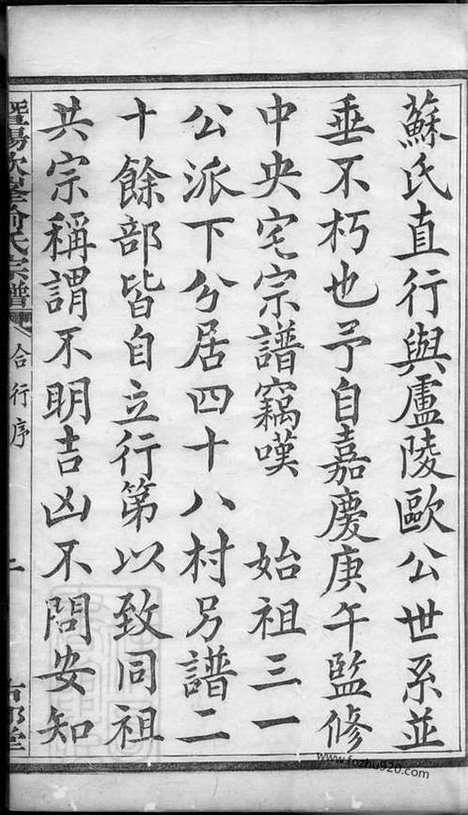 蘇氏直行與廬陵歐公世系並
垂不朽也予自嘉慶庚午監修
中央宅宗譜竊嘆 始祖三一
公派下分居四十八村另譜二
十餘部皆自立行第以致同祖
共宗稱謂不明吉凶不問安知
暨陽 俞氏宗譜 合行序
www.fozhu920.com